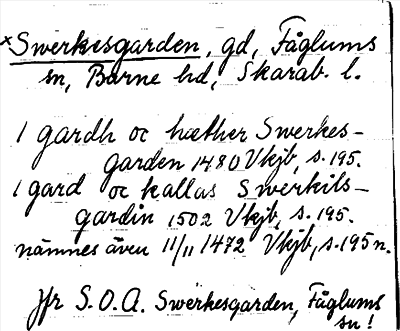 ×Swerkesgarden, gd, Fåglums
sn, Barne hd, Skarab. l.
1 gardh oc hæther Swerkes-
garden 1480 Vkjb, s. 195.
1 gard oc kallas Swerkils-
gardin 1502 Vkjb, s. 195.
nämnes även 11/11 1472 Vkjb, s. 195 n.
Jfr S.O.A. Swerkesgarden, Fåglums
sn!